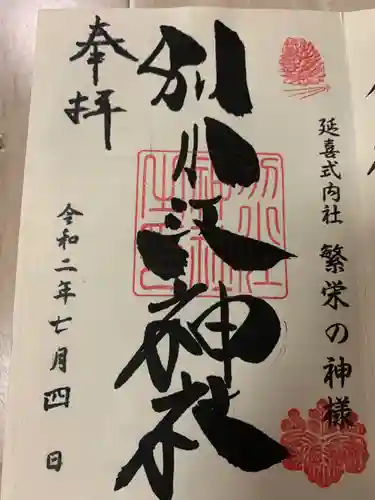 延喜式内社 繁栄の神様
別小江神社
奉拝
令和二年七月四日